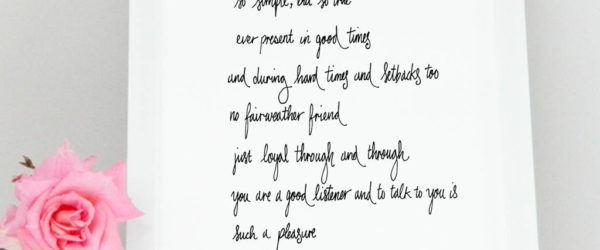 so simple, but so true
ever present in good times
and during hard times and setbacks too
no fairweather friend
just loyal through and through
you are a good listener and to talk to you is
such a pleasure